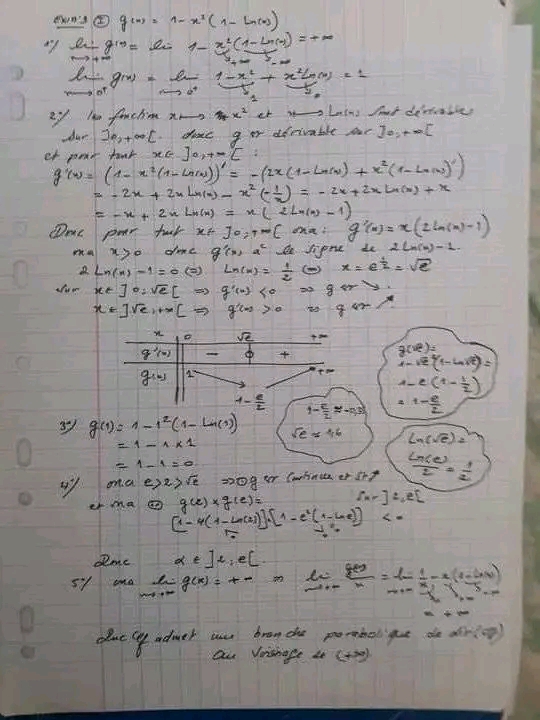 Exercice ① g(x) = 1 - x²(1 - Ln(x))
1°/ lim g(x) = lim 1 - x²(1 - Ln(x)) = +∞
x→+∞ →+∞ →-∞
lim g(x) = lim 1 - x² + x² Ln(x) = 1
x→0⁺ x→0⁺ →1 →0
2°/ les fonction x ↦ x² et x ↦ Ln(x) sont dérivables
sur ]0,+∞[. donc g est dérivable sur ]0,+∞[
et pour tout x ∈ ]0,+∞[ :
g'(x) = (1 - x²(1 - Ln(x)))' = -(2x(1 - Ln(x)) + x²(1 - Ln(x))')
= -2x + 2x Ln(x) - x²(-1/x) = -2x + 2x Ln(x) + x
= -x + 2x Ln(x) = x(2 Ln(x) - 1)
Donc pour tout x ∈ ]0,+∞[ ona: g'(x) = x(2 Ln(x) - 1)
ona x > 0 donc g'(x) a le signe de 2 Ln(x) - 1.
2 Ln(x) - 1 = 0 ⇔ Ln(x) = 1/2 ⇔ x = e^{1/2} = √e
sur x ∈ ]0,√e[ ⇒ g'(x) < 0 ⇒ g est ↘.
x ∈ ]√e,+∞[ ⇒ g'(x) > 0 ⇒ g est ↗
x 0 √e +∞
g'(x) - 0 +
g(x) 1 ↘ 1 - e/2 ↗ +∞
g(√e) =
1 - √e²(1 - Ln√e) =
1 - e(1 - 1/2)
= 1 - e/2
1 - e/2 ≈ -0,3
√e ≈ 1,6
Ln(√e) =
Ln(e)/2 = 1/2
3°/ g(1) = 1 - 1²(1 - Ln(1))
= 1 - 1 × 1
= 1 - 1 = 0
4°/ ona e > 2 > √e ⇒ g est continue et st ↗
sur ]2,e[
et ona g(2) × g(e) =
[1 - 4(1 - Ln(2))] · [1 - e²(1 - Ln e)] < 0
Donc α ∈ ]2,e[.
5°/ ona lim g(x) = +∞ ⇒ lim g(x)/x = lim 1/x - x(1 - Ln(x))
x→+∞ x→+∞ x→+∞
= +∞
donc Cg admet une branche parabolique de dir (oy)
au voisinage de (+∞)